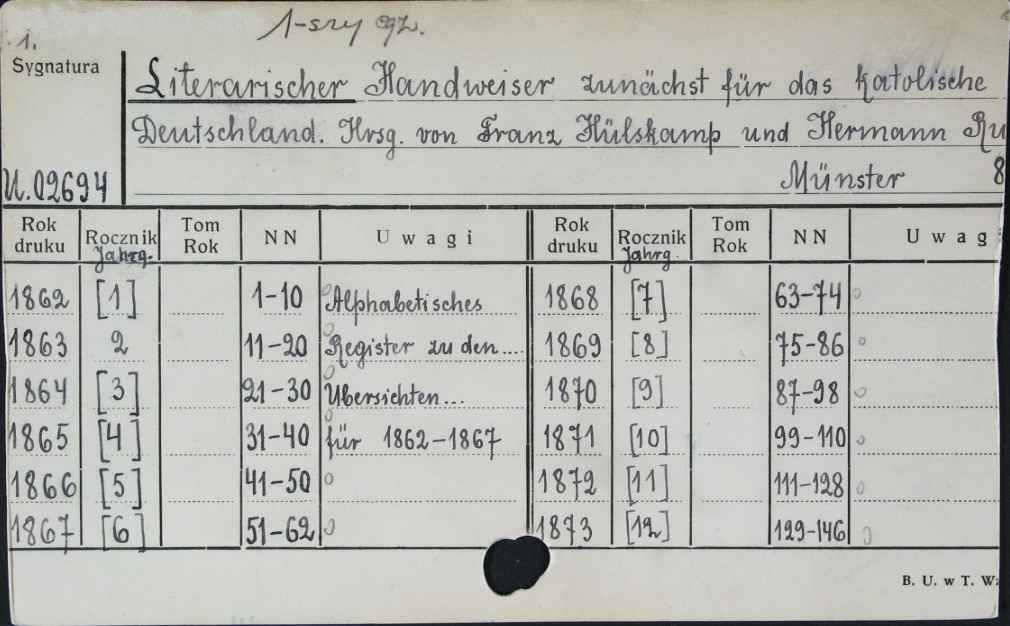 1-szy egz.
1.
Sygnatura
Literarischer Handweiser zunächst für das katolische
Deutschland. Hrsg. von Franz Hülskamp und Hermann Ru
U.02694
Münster 8
Rok druku Rocznik Jahrg. Tom Rok NN Uwagi Rok druku Rocznik Jahrg. Tom Rok NN Uwag
1862 [1] 1-10 Alphabetisches 1868 [7] 63-74
1863 2 11-20 Register zu den.... 1869 [8] 75-86
1864 [3] 21-30 Ubersichten... 1870 [9] 87-98
1865 [4] 31-40 für 1862-1867 1871 [10] 99-110
1866 [5] 41-50 1872 [11] 111-128
1867 [6] 51-62 1873 [12] 129-146
B. U. w T. W